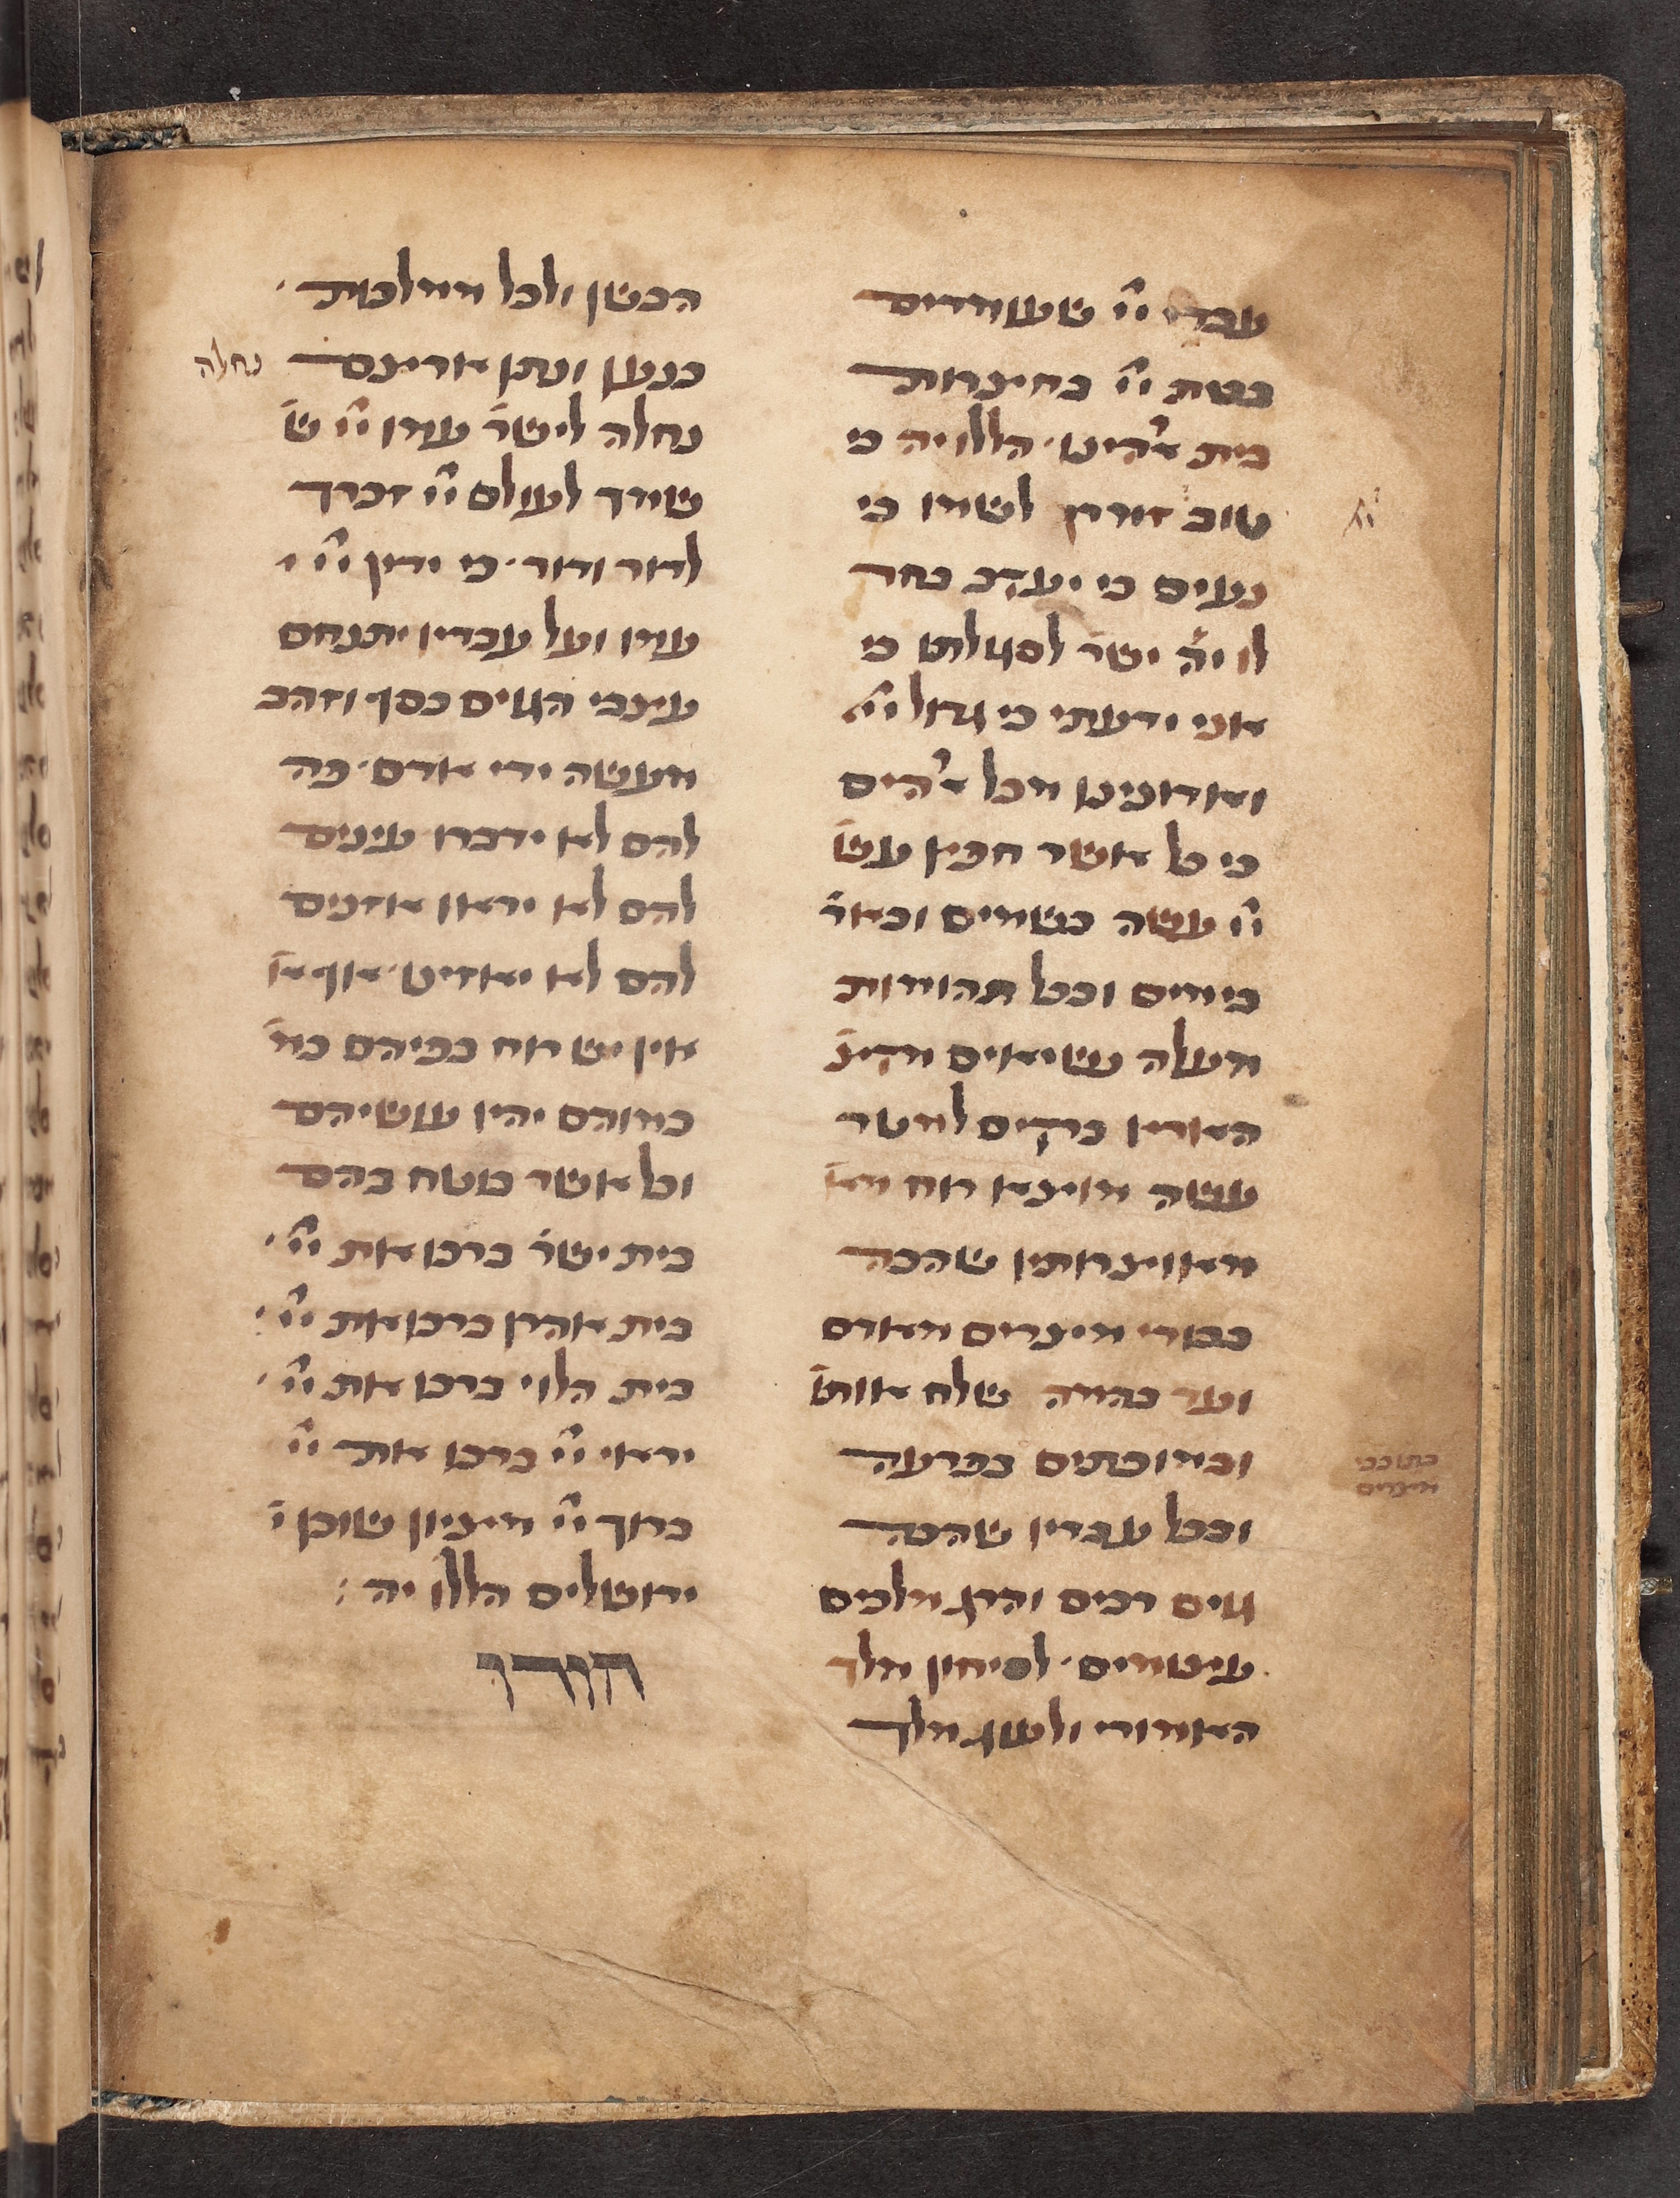 עבדי ייי שעומדים
בבית ייי בחצרות
בית אלהינו· הללויה כי
טוב זמרו לשמו כי
ייי
נעים כי יעקב בחר
לו יה ישר לסגולתו כי
אני ידעתי כי גדול ייי
ואדונינו מכל אלהים
כי כל אשר חפץ עש
ייי עשה בשמים ובאר
בימים ובכל תהומות
מעלה נשיאים מקצ
הארץ ברקים למטר
עשה מוצא רוח מא
מאוצרותיו שהכה
בכורי מצרים מאדם
ועד בהמה שלח אותו
ומופתים בפרעה
בתוככי
מצרים
ובכל עבדיו שהכה
גוים רבים והרג מלכים
עצומים· לסיחון מלך
האמורי ולעוג מלך
הבשן ולכל ממלכות·
כנען ונתן ארצם נחלה
נחלה לישר עמו ייי ש
שמך לעולם ייי זכרך
לדור ודור· כי ידין ייי י
עמו ועל עבדיו יתנחם
עצבי הגוים כסף וזהב
מעשה ידי אדם· פה
להם לא ידברו עינים
להם לא יראו אזנים
להם לא יאזינו· אף א
אין יש רוח בפיהם כמ
כמוהם יהיו עושיהם
וכל אשר בוטח בהם
בית ישר ברכו את ייי·
בית אהרן ברכו את ייי:
בית הלוי ברכו את ייי·
יראי ייי ברכו את ייי
ברוך ייי מציון שוכן י
ירושלים הללו יה:
הודו